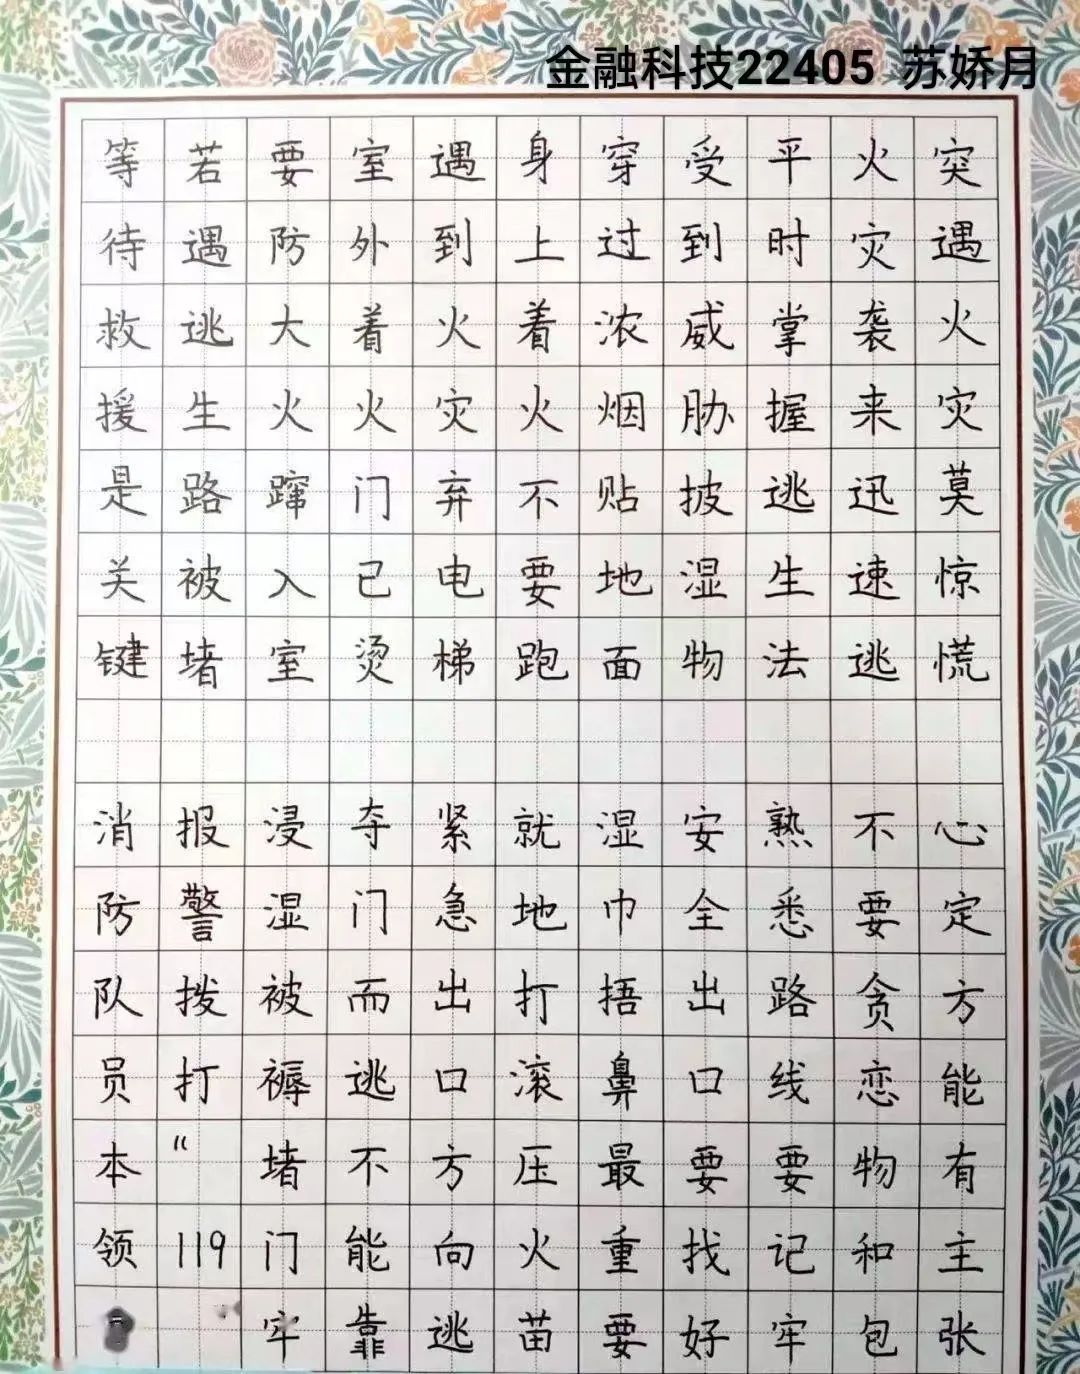 金融科技22405 苏娇月
突遇火灾莫惊慌 心定方能有主张
火灾袭来迅速逃 不要贪恋物和包
平时掌握逃生法 熟悉路线要记牢
受到威胁披湿物 安全出口要找好
穿过浓烟贴地面 湿巾捂鼻最重要
身上着火不要跑 就地打滚压火苗
遇到火灾弃电梯 紧急出口方向逃
室外着火门己烫 夺门而逃不能靠
要防大火蹿入室 浸湿被褥堵门牢
若遇逃生路被堵 报警拨打“119
等待救援是关键 消防队员本领